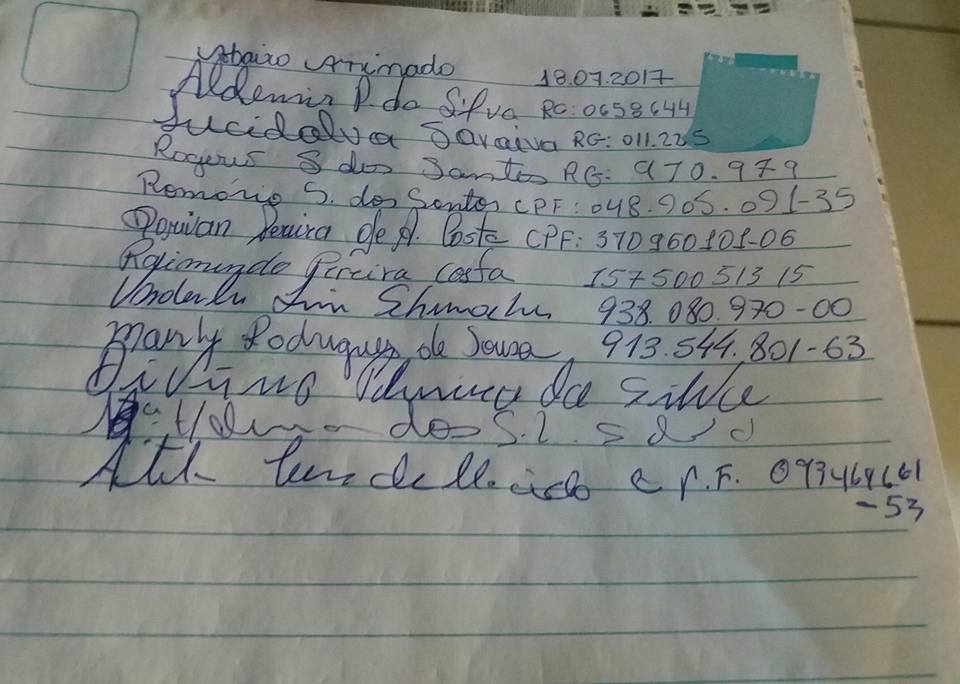 Abaixo Assinado 18.07.2017
Aldemir P. da Silva RG: 0658644
Lucidalva Saraiva RG: 011.225
Rogerio S dos Santos RG: 970.979
Romário S. dos Santos CPF: 048.905.091-35
Dorivan Pereira de A. Costa CPF: 370960101-06
Raimundo Pereira Costa 157500513 15
938.080.970-00
Marly Rodrigues de Sousa 913.544.801-63
Divino da Silva
dos S.
C.P.F.
-53